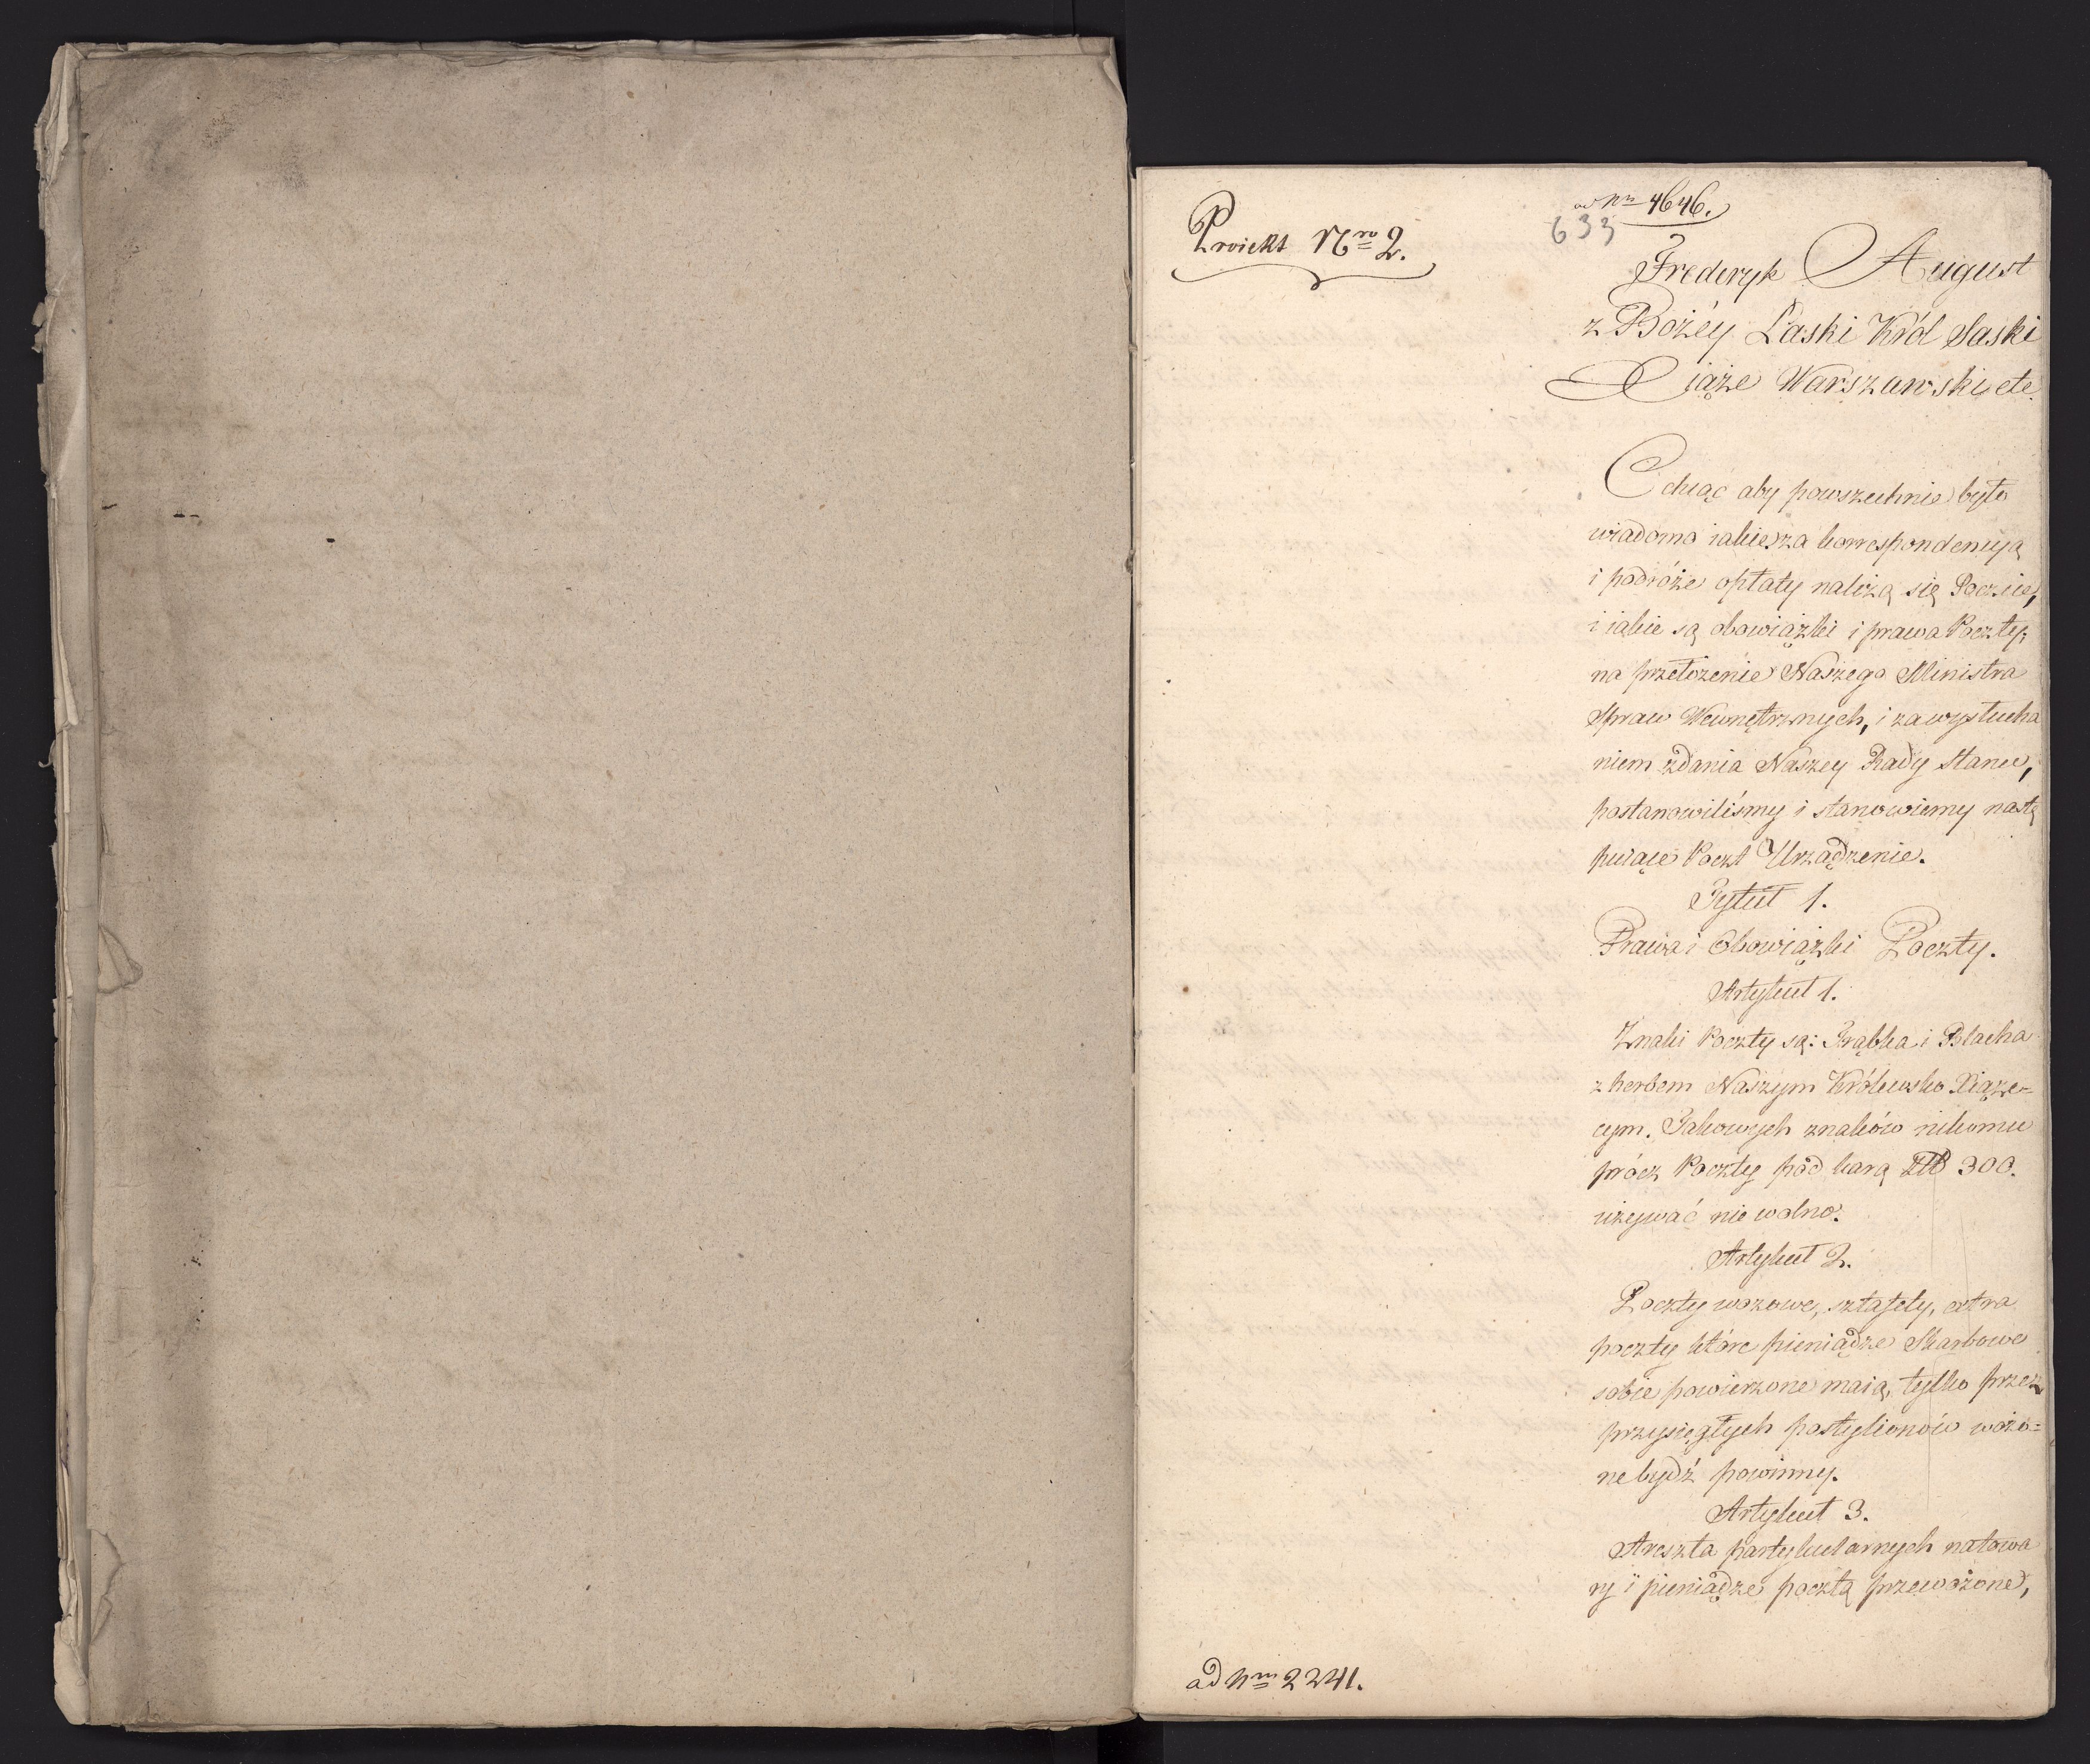 Proiekt Nro 2.
ad Nm 4646.
633
Frederyk August
z Bożéy Łaski Król Saski
Xiąże Warszawski, etc.
Chcąc aby powszechnie było
wiadomo iakie za korrespondencyą
i podróże opłaty należą się Poczcie,
i iakie są obowiązki i prawa Poczty;
na przełożenie Naszego Ministra
Spraw Wewnętrznych, i za wysłucha
niem zdania Naszey Rady Stanu,
postanowiliśmy i stanowiemy nastę
puiące Poczt Urządzenie.
Tytuł 1.
Prawa i Obowiązki Poczty.
Artykuł 1.
Znaki Poczty są: Trąbka i Blacha
z herbem Naszym Królewsko Xiąże=
cym. Takowych znaków nikomu
prócz Poczty pod karą 300.
używać nie wolno.
Artykuł 2.
Poczty wozowe, sztafety, extra
poczty które pieniądze Skarbowe
sobie powierzone maią, tylko przez
przysięgłych postylionów wożo=
ne bydź powinny.
Artykuł 3.
Areszta partykularnych na towa
ry i pieniądze pocztą przewożone,
ad Nm 2241.